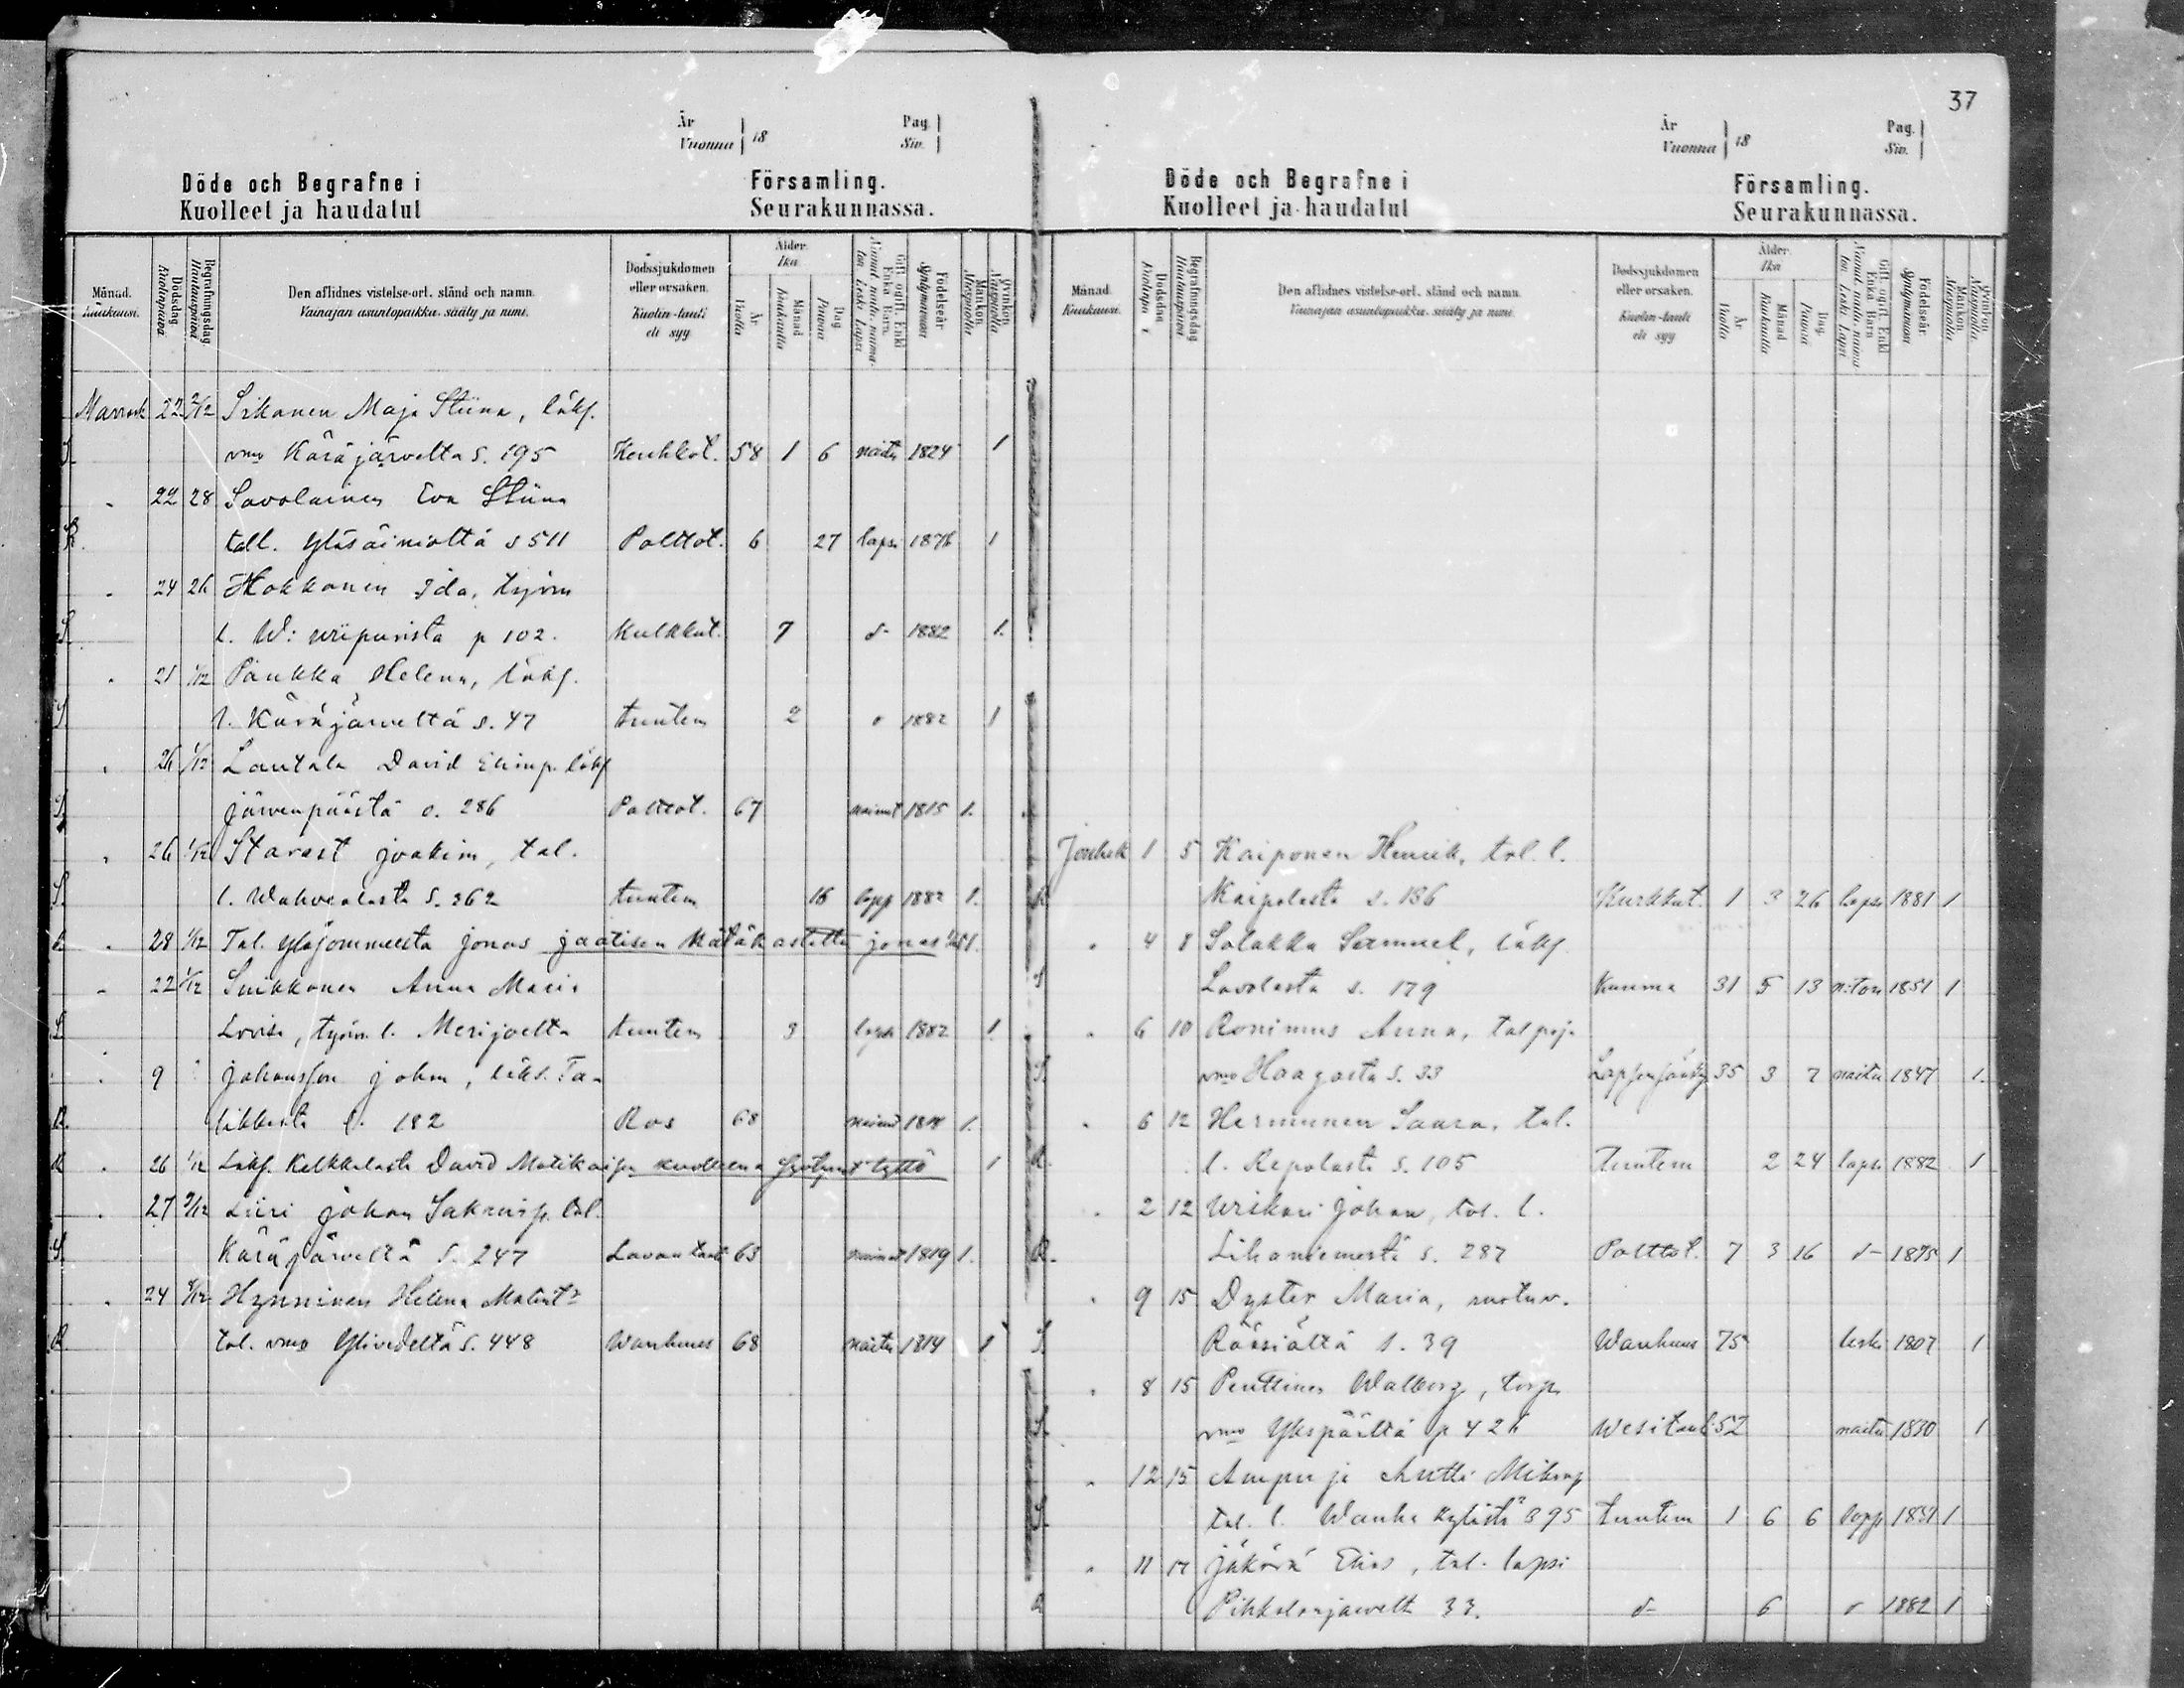 37
År Vuonna 18 Pag. Siv.
Döde och Begrafne i Församling.
Kuolleet ja haudatut Seurakunnassa.
Månad. Kuukausi. Dödsdag Kuolinpäivä Begrafningsdag. Hautauspäivä Den aflidnes vistelse-ort, stånd och namn. Vainajan asuntopaikka, sääty ja nimi. Dödssjukdomen eller orsaken. Kuolin-tauti eli syy Ålder. Ikä År Vuotta Månad Kuukautta Dag Päivää Gift, ogift, Enkl. Enka Barn. Födelseår Syntymävuosi Mankön Miespuolia Qvinkön
Marrask 22 2/12 Sikanen Maja Stiina, läks.
S. vmo Käräjärveltä s. 195 Keuhkot. 58 1 6 naitu 1824 1
22 28 Savolainen Eva Stiina
R. tall. Yläsäiniöltä s 511 Polttot. 6 27 lapsi 1876 1
24 26 Hokkanen Ida, työm
S. l. W: wiipurista p 102. Kulkkut. 7 d- 1882 1.
21 1/12 Paukka Helena, läks.
S l. Käräjärveltä s. 47 tuntem 2 1882 1
26 1/12 Lautala David Elimp. läks
S. järvenpäästä s. 286 Polttot. 67 nainut 1815 1.
26 1/12 Starast joakim, tal.
S. l. Wahvialasta s. 262 tuntem 16 laps 1882 1.
28 1/12 Tal. Yläjommeesta jonas
22 1/12 Suikkanen Anna Maria
S Lovisa, työm. l. Merijoelta tuntem 3 lapsi 1882 1.
9 johansson john, läks. Ta-
R. likkesta s. 182 Ros 68 nainut 1.
R 26 1/12 Läks. Kelkkalasta David kuolleena syntynyt tyttö 1
27 2/12 Liiri johan Sakarisp. tal.
S. Käräjärveltä s. 247 Lavantauti 63 nainut 1819 1.
24 Hynninen Helena Matint:
R tal. vmo Ylividelta s. 448 Wanhuus 68 naitu 1814 1
År Vuonna 18 Pag. Siv.
Döde och Begrafne i Församling.
Kuolleet ja haudatut Seurakunnassa.
Månad. Kuukausi. Dödsdag Begrafningsdag Hautauspäivä Den aflidnes vistelse-ort, stånd och namn. Vainajan asuntopaikka, sääty ja nimi. Dödssjukdomen eller orsaken. Kuolin-tauti eli syy Ålder. Ikä År Vuotta Månad Kuukautta Dag Päivää Gift, ogift, Enkl. Enka Barn Födelseår Syntymävuosi Mankön Miespuolia Qvinkön
Jouluk 1 5 Kaiponen Henrik, tal. l.
R Kaipolasta s. 186 Kurkkut. 1 3 26 lapsi 1881 1
4 8 Solakka Samuel, läks.
S Lavolasta s. 179 Kuuma 31 5 13 n:ton 1851 1
6 10 Ronimus Anna, tal poj.
S. vmo Haagasta s. 33 35 3 7 naitu 1847 1.
6 12 Hermunen Saara, tal.
R. l. Repolasta s. 105 Tuntem 2 24 lapsi 1882 1
2 12 Urikari Johan, tal. l.
R. Lihaniemestä s. 287 Polttot. 7 3 16 d- 1875 1
9 15 Dyster Maria, ruotuv.
S. Rääsiältä s. 39 Wanhuus 75 leski 1807 1
8 15 Penttinen Walborg, torp.
S. vmo Ykspäältä p 426 Wesitauti 52 naitu 1830 1
12 15 Ampuja Antti Mikonp
S. tal. l. Wanha kylästä 395 tuntem 1 6 6 1
11 17 jäkärä Elias, tal. lapsi
R 33. d- 6 1882 1